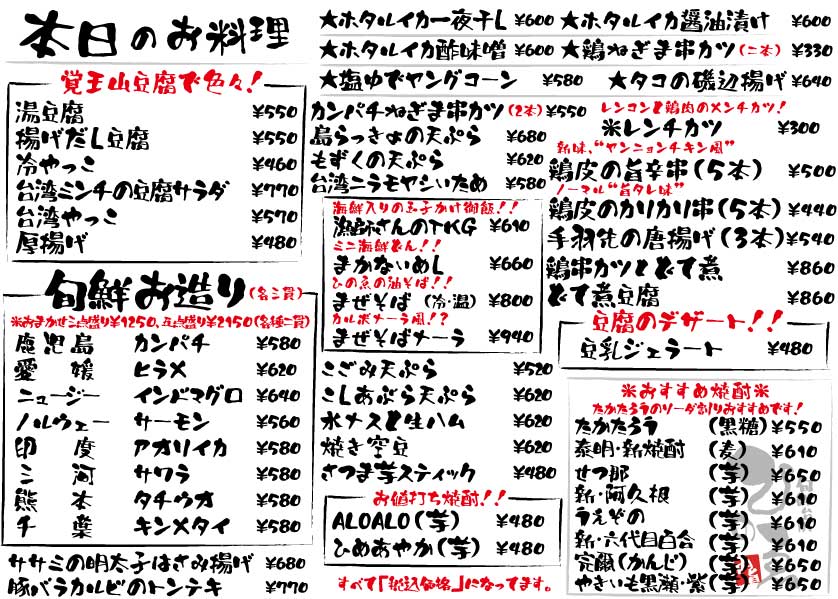 本日のお料理
覚王山豆腐で色々!
湯豆腐 ¥550
揚げだし豆腐 ¥550
冷やっこ ¥460
台湾ミンチの豆腐サラダ ¥770
台湾やっこ ¥570
厚揚げ ¥480
旬鮮お造り(各二貫)
※おまかせ三点盛り¥1250、五点盛り¥2150(各種二貫)
鹿児島 カンパチ ¥580
愛媛 ヒラメ ¥620
ニュージー インドマグロ ¥640
ノルウェー サーモン ¥560
印度 アオリイカ ¥580
三河 サワラ ¥580
熊本 タチウオ ¥580
千葉 キンメダイ ¥580
ササミの明太子はさみ揚げ ¥680
豚バラカルビのトンテキ ¥770
★ホタルイカ一夜干し ¥600
★ホタルイカ醤油漬け ¥600
★ホタルイカ酢味噌 ¥600
★鶏ねぎま串カツ(二本) ¥330
★塩ゆでヤングコーン ¥580
★タコの磯辺揚げ ¥640
カンパチねぎま串カツ(2本) ¥550
島らっきょの天ぷら ¥680
もずくの天ぷら ¥620
台湾ニラモヤシいため ¥580
海鮮入りの玉子かけ御飯!!
漁師さんのTKG ¥610
ミニ海鮮どん!!
まかないめし ¥660
ひの系の油そば!!
まぜそば(冷・温) ¥800
カルボナーラ風!?
まぜそばナーラ ¥940
こごみ天ぷら ¥520
こしあぶら天ぷら ¥620
水ナスと生ハム ¥620
焼き空豆 ¥620
さつま芋スティック ¥480
お値打ち焼酎!!
ALOALO(芋) ¥480
ひめあやか(芋) ¥480
すべて「税込価格」になってます。
レンコンと鶏肉のメンチカツ!
※レンチカツ ¥300
新味、"ヤンニョンチキン風"
鶏皮の旨辛串(5本) ¥500
ノーマル"旨タレ味"
鶏皮のカリカリ串(5本) ¥440
手羽先の唐揚げ(3本) ¥540
鶏串カツとどて煮 ¥860
どて煮豆腐 ¥860
豆腐のデザート!!
豆乳ジェラート ¥480
※おすすめ焼酎※
たかたろうのソーダ割りおすすめです!
たかたろう(黒糖) ¥550
泰明・新焼酎(麦) ¥610
せつ那(芋) ¥650
新・阿久根(芋) ¥610
うえぞの(芋) ¥610
新・六代目百合(芋) ¥610
完爾(かんじ)(芋) ¥650
やきいも黒瀬・紫(芋) ¥650